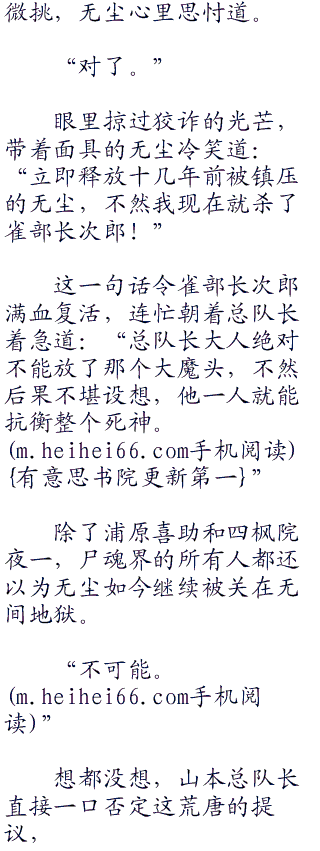 微挑，无尘心里思忖道。
“对了。”
眼里掠过狡诈的光芒，
带着面具的无尘冷笑道：
“立即释放十几年前被镇压
的无尘，不然我现在就杀了
雀部长次郎！”
这一句话令雀部长次郎
满血复活，连忙朝着总队长
着急道：“总队长大人绝对
不能放了那个大魔头，不然
后果不堪设想，他一人就能
抗衡整个死神。
(m.heihei66.com手机阅读)
{有意思书院更新第一}”
除了浦原喜助和四枫院
夜一，尸魂界的所有人都还
以为无尘如今继续被关在无
间地狱。
“不可能。
(m.heihei66.com手机阅
读)”
想都没想，山本总队长
直接一口否定这荒唐的提
议，